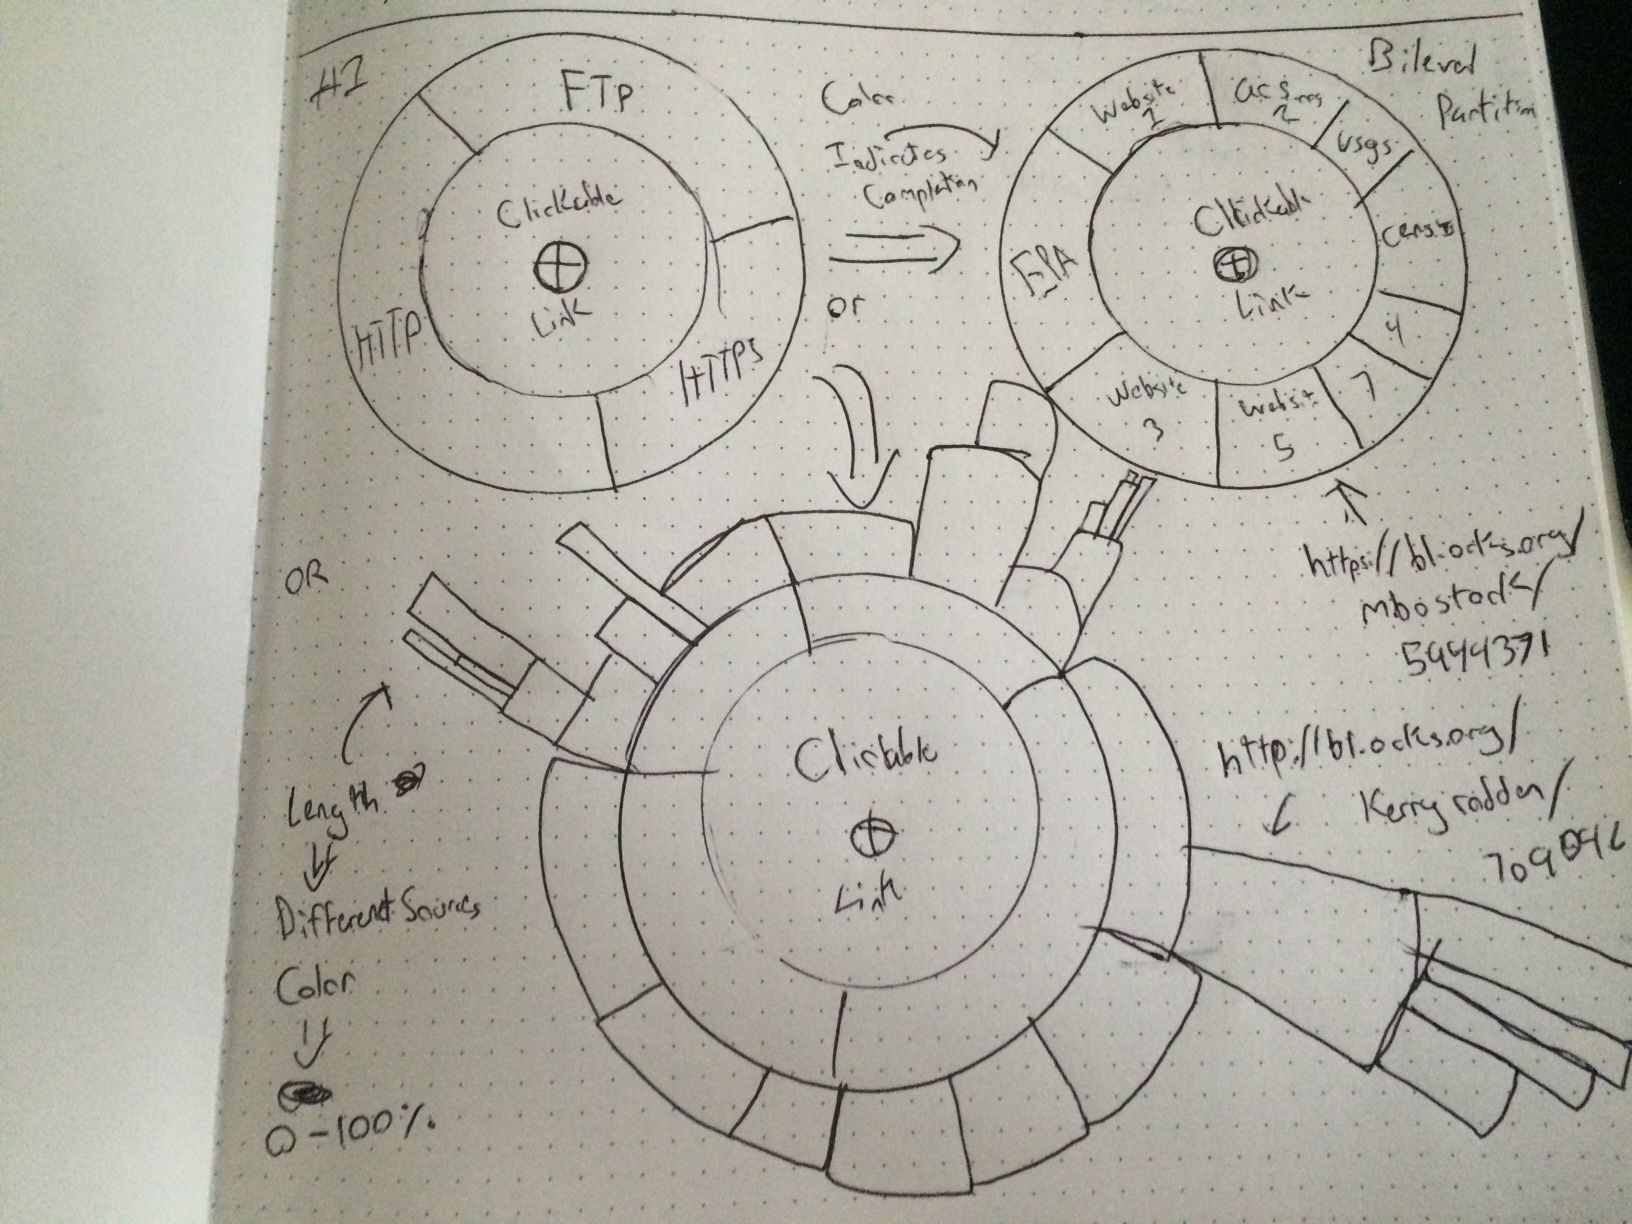 #1
HTTP
FTP
HTTPS
Clickable
Link
Color
Indicates
Completion
or
Bilevel
Partition
EPA
Website
1
2
usgs
census
4
7
Websit
5
Website
3
Clickable
Link
https://bl.ocks.org/
mbostock/
5944371
OR
Length
Different Sources
Color
0-100%
Clickble
Link
http://bl.ocks.org/
kerryrodden/